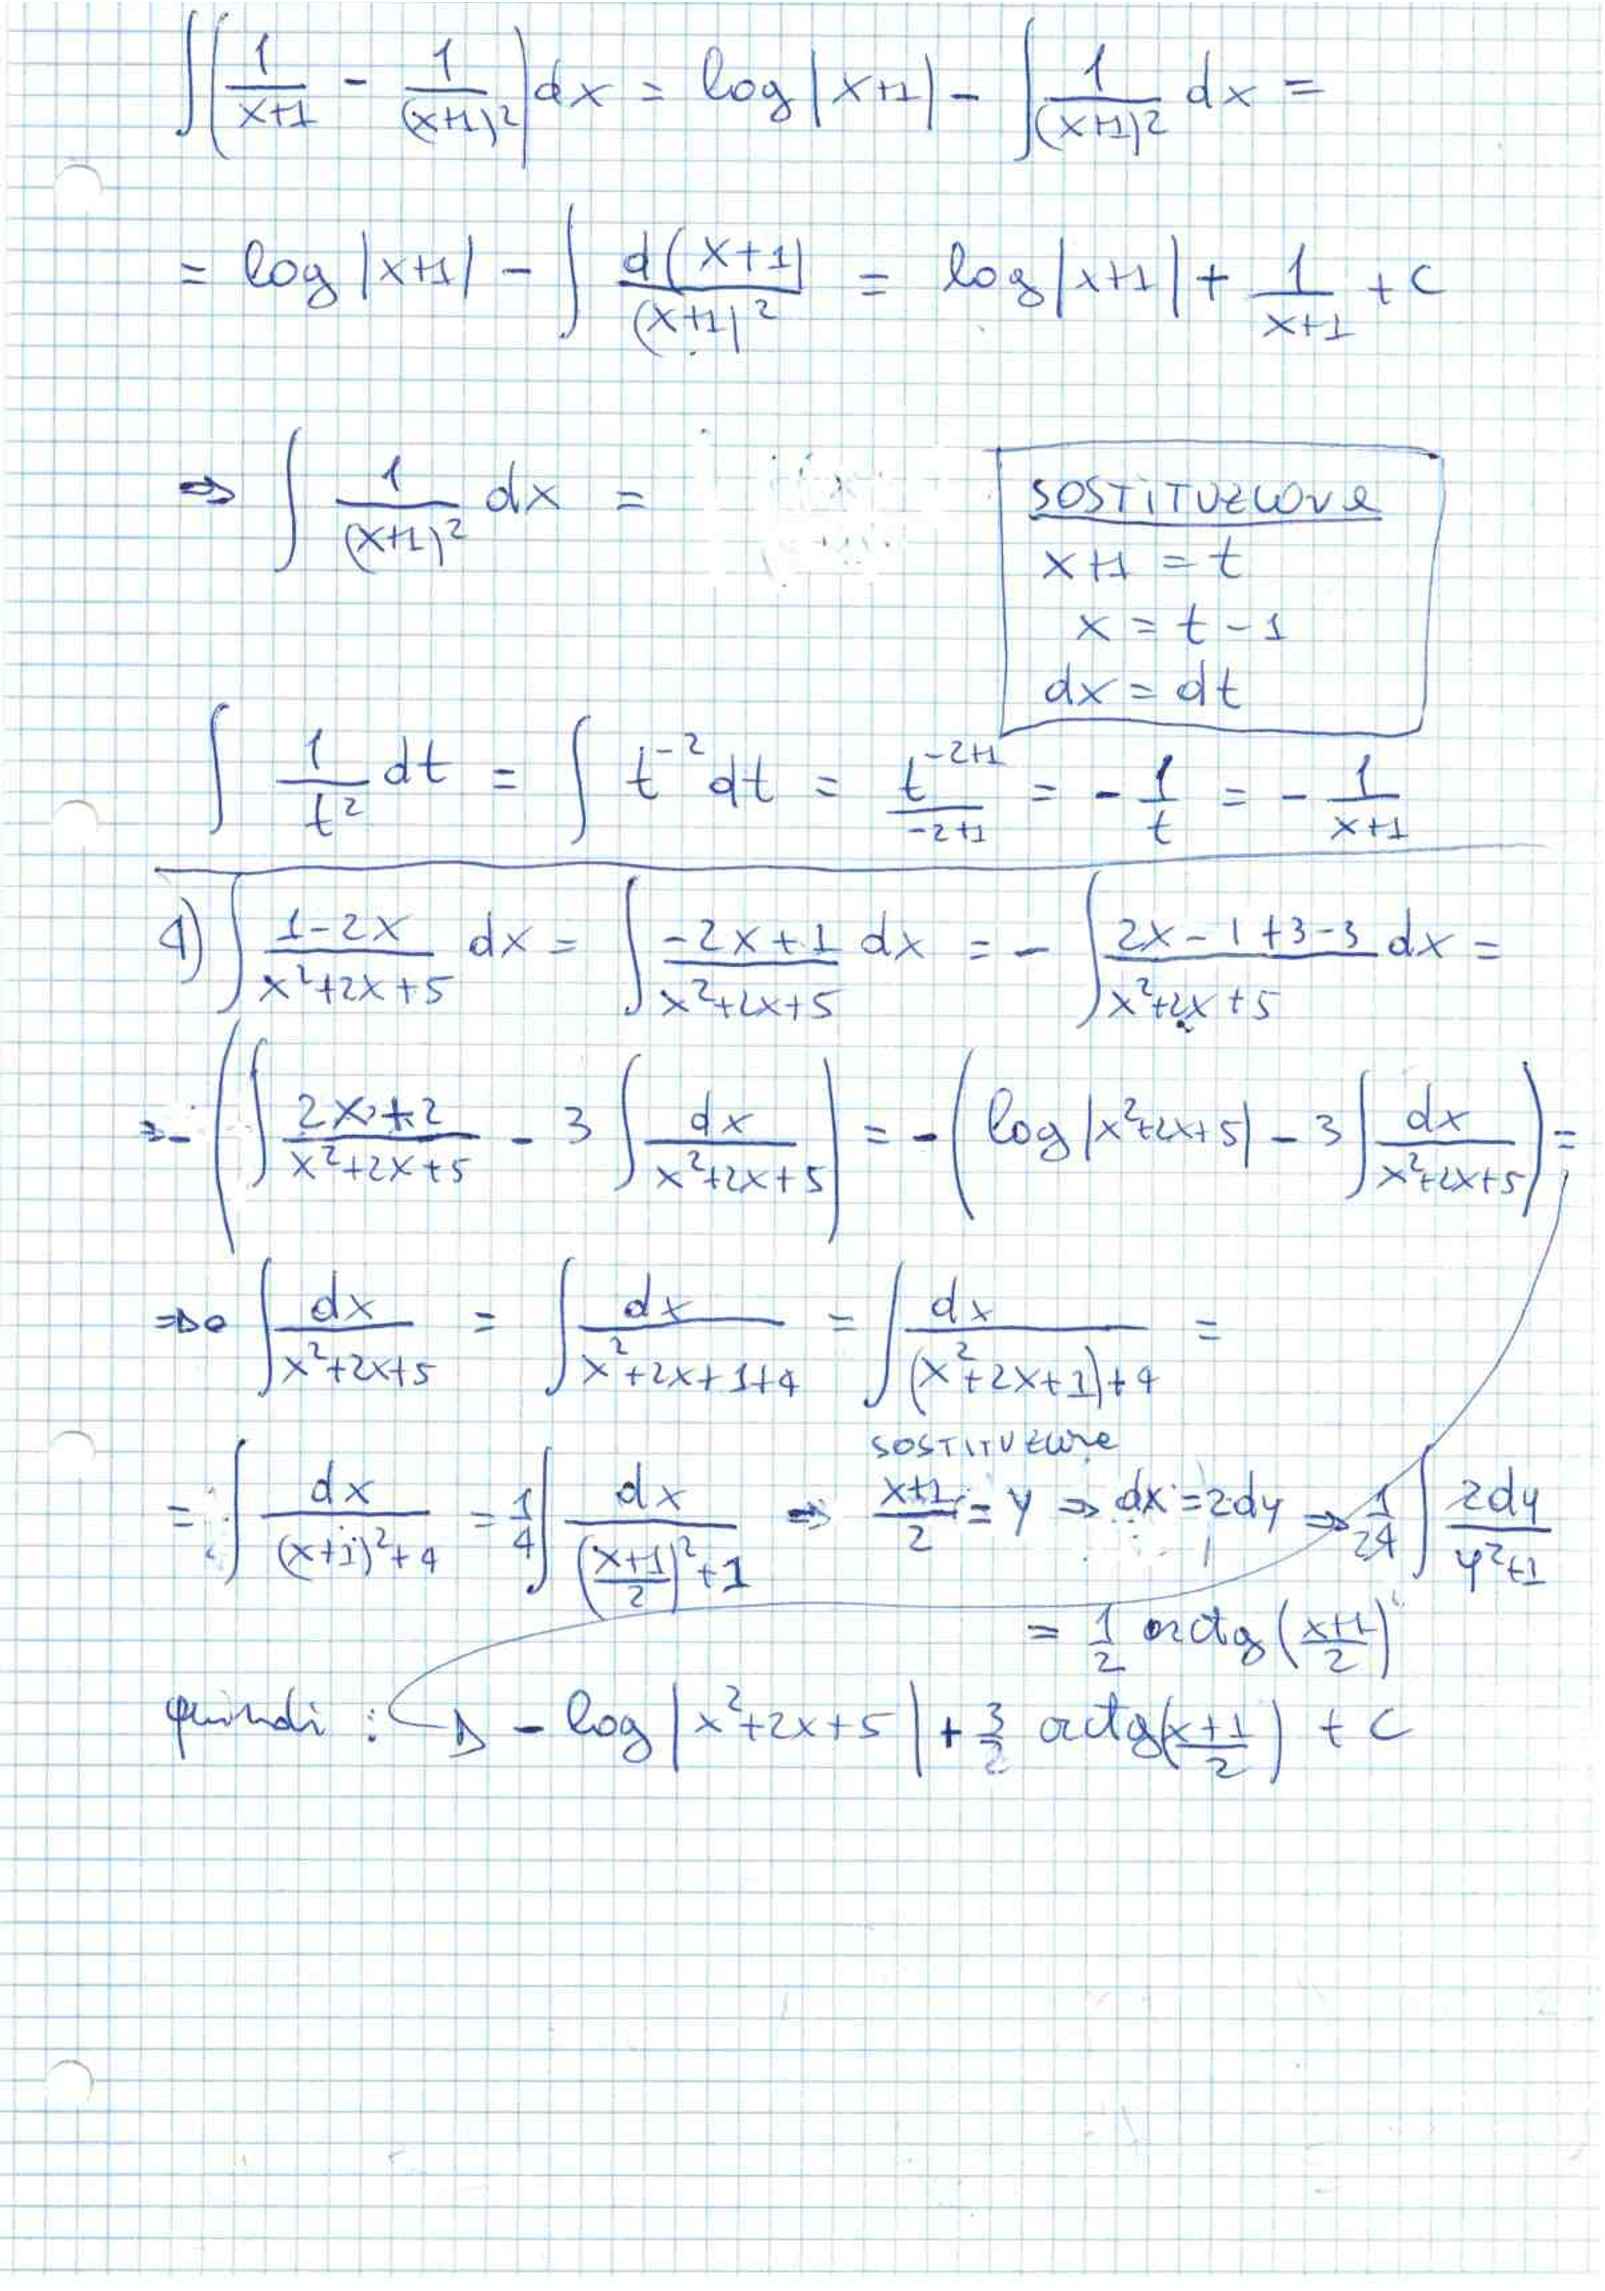 ∫(1/(x+1) - 1/(x+1)²)dx = log|x+1| - ∫1/(x+1)² dx =
= log|x+1| - ∫ d(x+1)/(x+1)² = log|x+1| + 1/(x+1) + c
⇒ ∫ 1/(x+1)² dx =
SOSTITUZIONE
x+1 = t
x = t-1
dx = dt
∫ 1/t² dt = ∫ t⁻² dt = t⁻²⁺¹/(-2+1) = - 1/t = - 1/(x+1)
4) ∫ (1-2x)/(x²+2x+5) dx = ∫ (-2x+1)/(x²+2x+5) dx = - ∫ (2x-1+3-3)/(x²+2x+5) dx =
⇒ - (∫ (2x+2)/(x²+2x+5) - 3 ∫ dx/(x²+2x+5)) = - (log|x²+2x+5| - 3 ∫ dx/(x²+2x+5)) =
⇒ ∫ dx/(x²+2x+5) = ∫ dx/(x²+2x+1+4) = ∫ dx/((x²+2x+1)+4) =
SOSTITUZIONE
= ∫ dx/((x+1)²+4) = 1/4 ∫ dx/(((x+1)/2)²+1) ⇒ (x+1)/2 = y ⇒ dx = 2dy ⇒ 1/24 ∫ 2dy/(y²+1)
= 1/2 arctg((x+1)/2)
quindi : - log|x²+2x+5| + 3/2 arctg((x+1)/2) + c